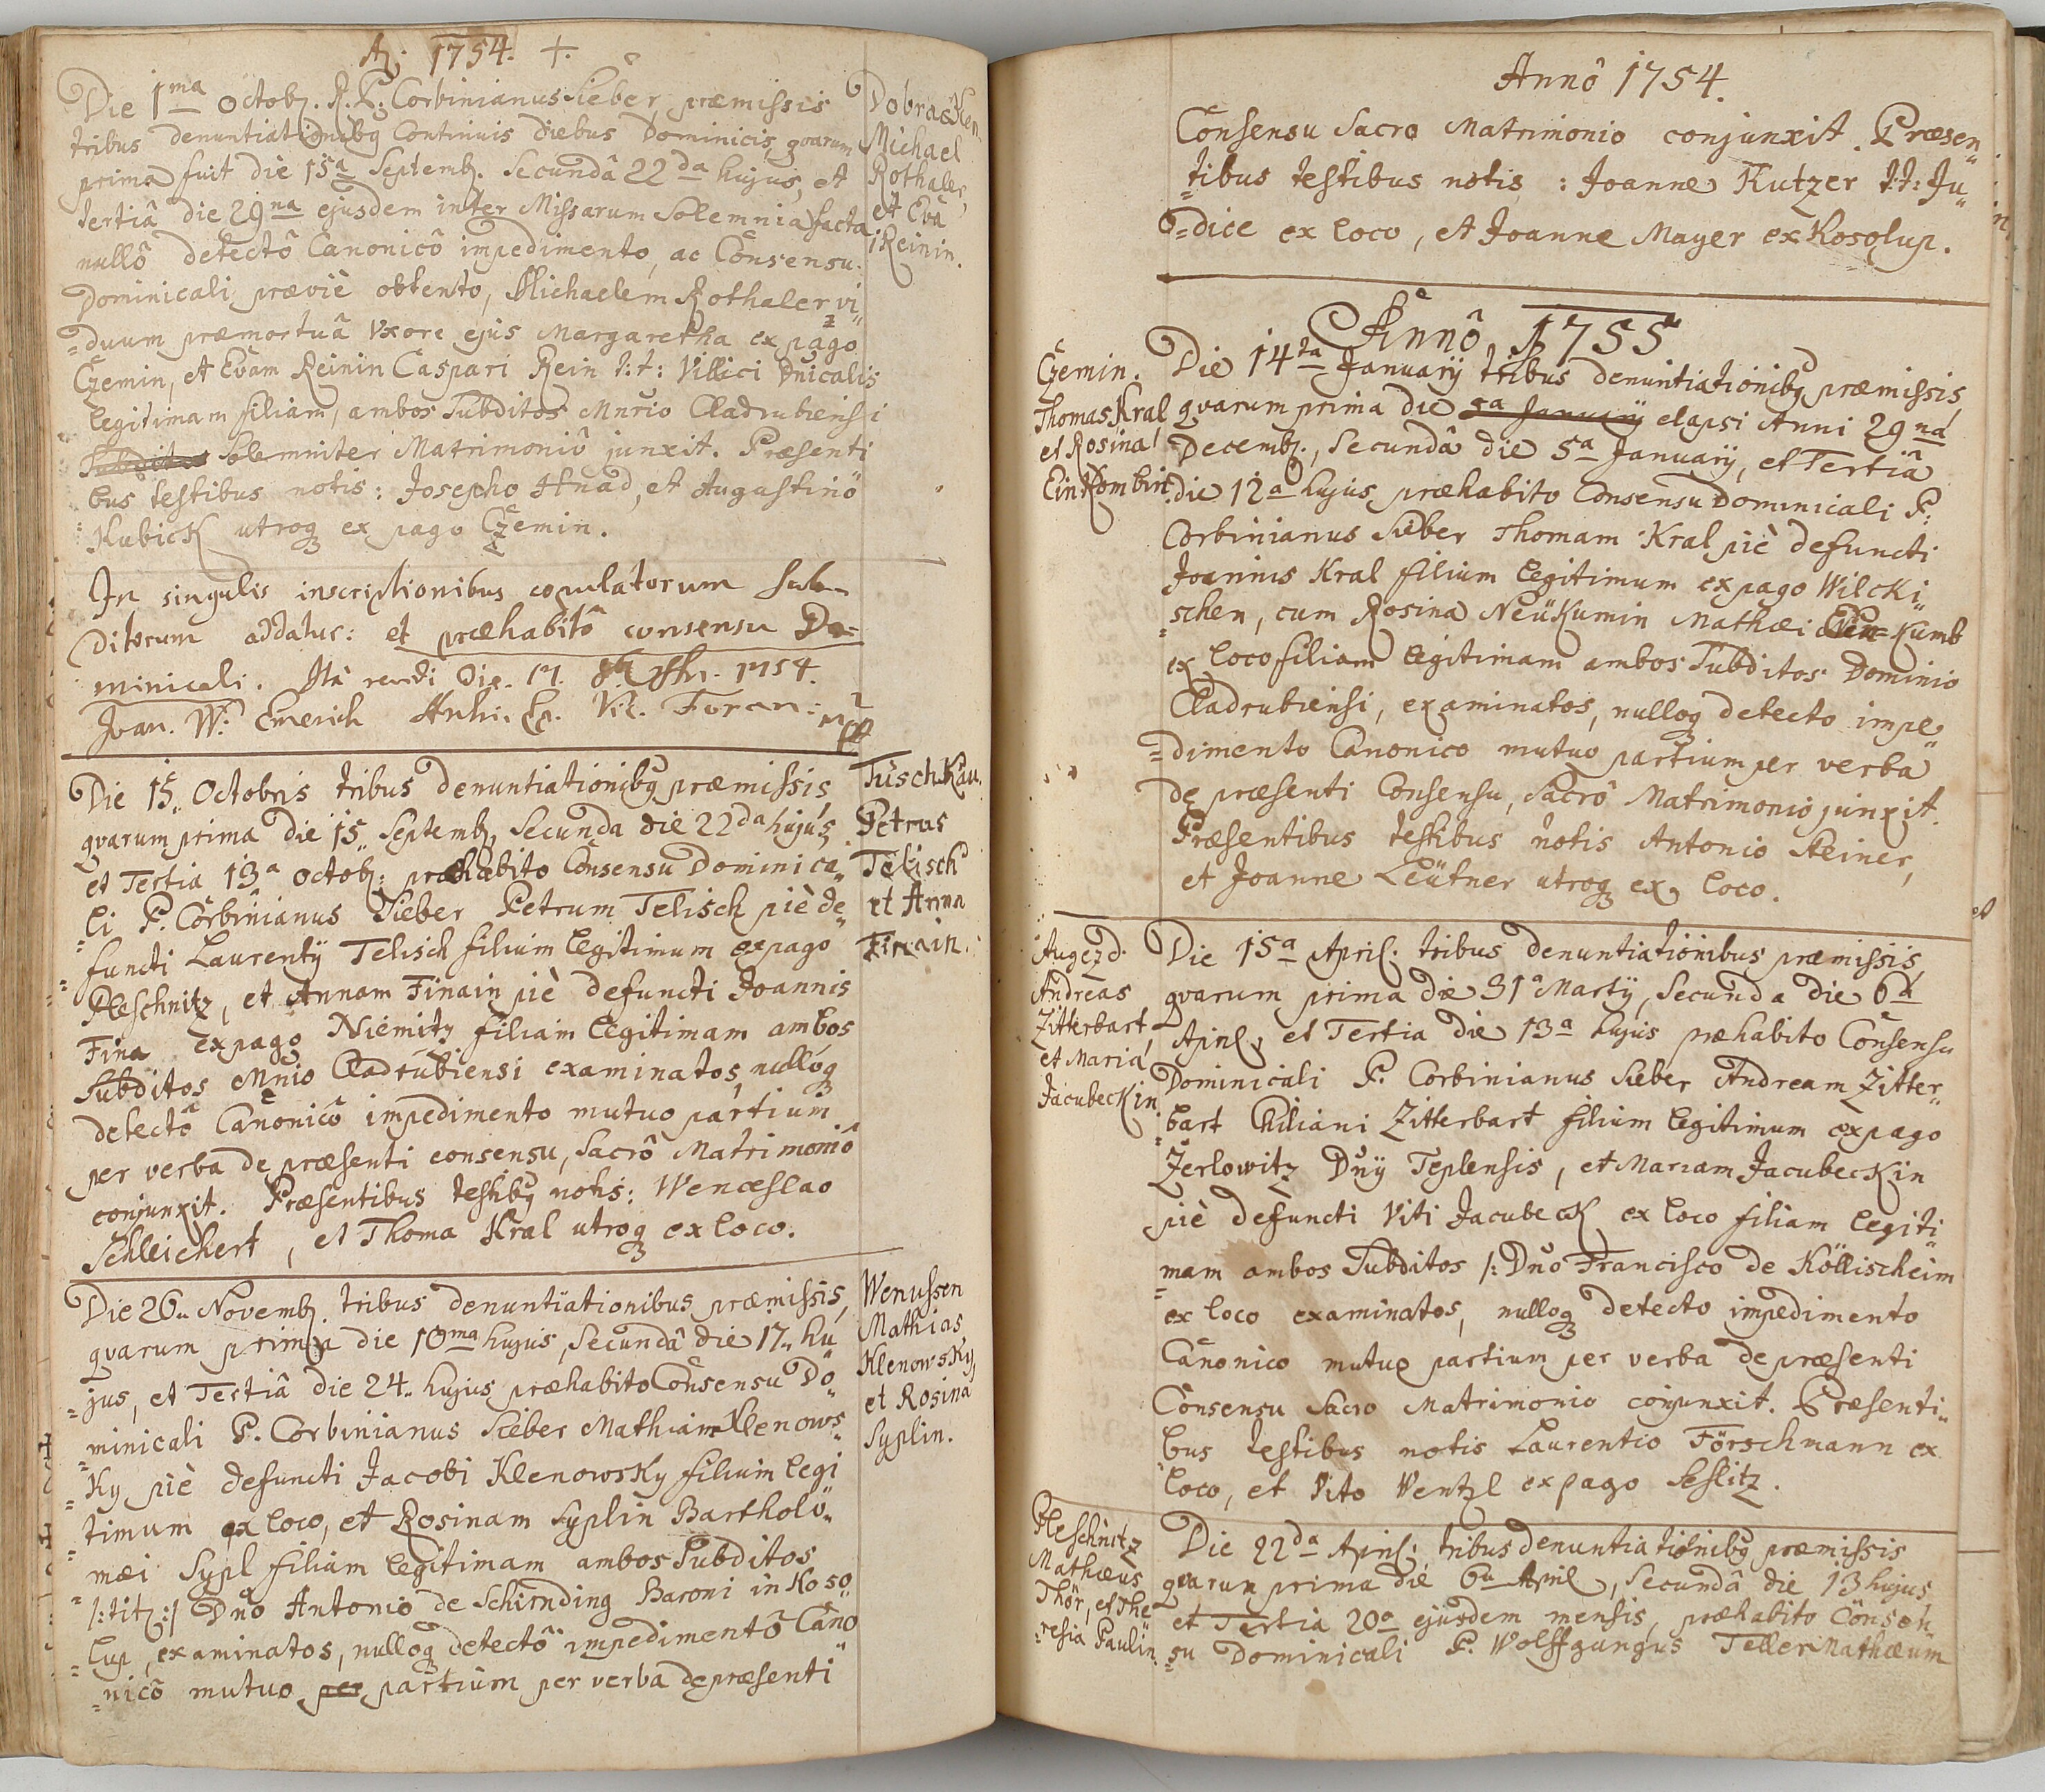 A: 1754. +.
Die 1ma Octob. R. P. Corbinianus Sieber præmissis
tribus denuntiationibg Continuis diebus Dominicis, qvarum
prima fuit die 15a Septemb. Secundâ 22da hujus, et
tertiâ die 29na ejusdem inter Missarum Solemnia facta
nullô detectô Canonicô impedimento, ac Consensu
Dominicali præviè obtento, Michaelem Rothaler vi„
=duum præmortuâ Uxore ejus Margaretha ex pago
Czemin, et Evam Reinin Caspari Rein t:t: Villici Dnicalis
legitimam filiam, ambos Subditos Mnrio Cladrubiensi
Subditos Solemniter Matrimoniô junxit. Præsenti
bus testibus notis: Josepho Hnad, et Augustinô
Kubick utroq ex pago Czemin.
Dobracken
Michael
Rothaler,
et Eva
Reinin.
In singulis inscriptionibus copulatorum sub=
ditorum addatur: et præhabitô consensu Do=
minicali. Ità 1754.
Joan. W. Emerich Vic. Foran: mpp
Die 15„ Octobris tribus denuntiationibg præmissis
qvarum prima die 15„ Septemb, Secunda die 22da hujus,
et Tertia 13a Octob: præhabito Consensu Dominica„
=li P. Corbinianus Sieber Petrum Telisch piè de„
functi Laurentÿ Telisch filium legitimum ex pago
Pleschnitz, et Annam Finain piè defuncti Joannis
Fina ex pago Niemitz filiam legitimam ambos
Subditos Mnrio Cladrubiensi examinatos, nulloq
detectô Canonicô impedimento mutuo partium
per verba de præsenti consensu, Sacrô Matrimoniô
conjunxit. Præsentibus testibg notis: Wenceslao
Schleichert, et Thoma Kral utroq ex loco.
Tuschkau.
Petrus
Telisch
et Anna
Finain.
Die 26„ Novemb. tribus denuntiationibus præmissis,
qvarum prima die 10ma hujus, Secundâ die 17„ hu„
=jus, et Tertiâ die 24„ hujus præhabito Consensu Do„
=minicali P. Corbinianus Sieber Mathiam Klenows„
=Ky piè defuncti Jacobi Klenowsky filium legi„
=timum ex loco, et Rosinam Syplin Bartholo„
=mæi Sypl filiam legitimam ambos Subditos
/:tit:/ Dño Antonio de Schirnding Baroni in Koso„
=lup, examinatos, nulloq detectô impedimentô Cano„
=nicô mutuo per partium per verba de præsenti
Wenussen
Mathias
Klenowsky,
et Rosina
Syplin.
Annô 1754.
Consensu Sacro Matrimonio conjunxit. Præsen„
=tibus testibus notis: Joanne Kutzer t:t: Ju„
=dice ex loco, et Joanne Mayer ex Kosolup.
Annô 1755
Die 14ta Januarÿ tribus denuntiationibg præmissis,
qvarum prima die 5a Januarÿ elapsi Anni 29na
Decemb., Secundâ die 5a Januarÿ, et Tertiâ
die 12a hujus, præhabito Consensu Dominicali P.
Corbinianus Sieber Thomam Kral piè defuncti
Joannis Kral filium legitimum ex pago Wilcki„
=schen, cum Rosina Neükumin Mathæi Neu=Kumb
ex loco filiam legitimam ambos Subditos Dominio
Cladrubiensi, examinatos, nulloq detecto impe„
=dimento Canonico mutuo partium per verba
de præsenti Consensu, Sacrô Matrimonio junxit.
Præsentibus testibus notis Antonio Steiner,
et Joanne Leütner utroq ex loco.
Czemin.
Thomas Kral
et Rosina
Die 15a April. tribus denuntiationibus præmissis,
qvarum prima die 31a Martÿ, Secunda die 6ta
April, et Tertia die 13a hujus præhabito Consensu
Dominicali P. Corbinianus Sieber Andream Zitter„
=bart Kiliani Zitterbart filium legitimum ex pago
Zerlowitz Dnÿ Teplensis, et Mariam Jacubeckin
piè defuncti Viti Jacubeck ex loco filiam legiti„
=mam ambos Subditos /: Dño Francisco de Köllischeim
ex loco examinatos, nulloq detecto impedimento
Canonico mutuo partium per verba de præsenti
Consensu Sacro Matrimonio conjunxit. Præsenti„
bus testibus notis Laurentio Förschmann ex
loco, et Vito Wentzl ex pago Seslitz.
Augezd.
Andreas
Zitterbart,
et Maria
Jacubeckin
Die 22da April: tribus denuntiationibg præmissis
qvarum prima die 6ta April, Secundâ die 13 hujus
et Tertia 20a ejusdem mensis, præhabito Consen„
=su Dominicali P. Wolffgangus Teller Mathæum
Pleschnitz
Mathæus
Thör, et The„
=resia Paulin.